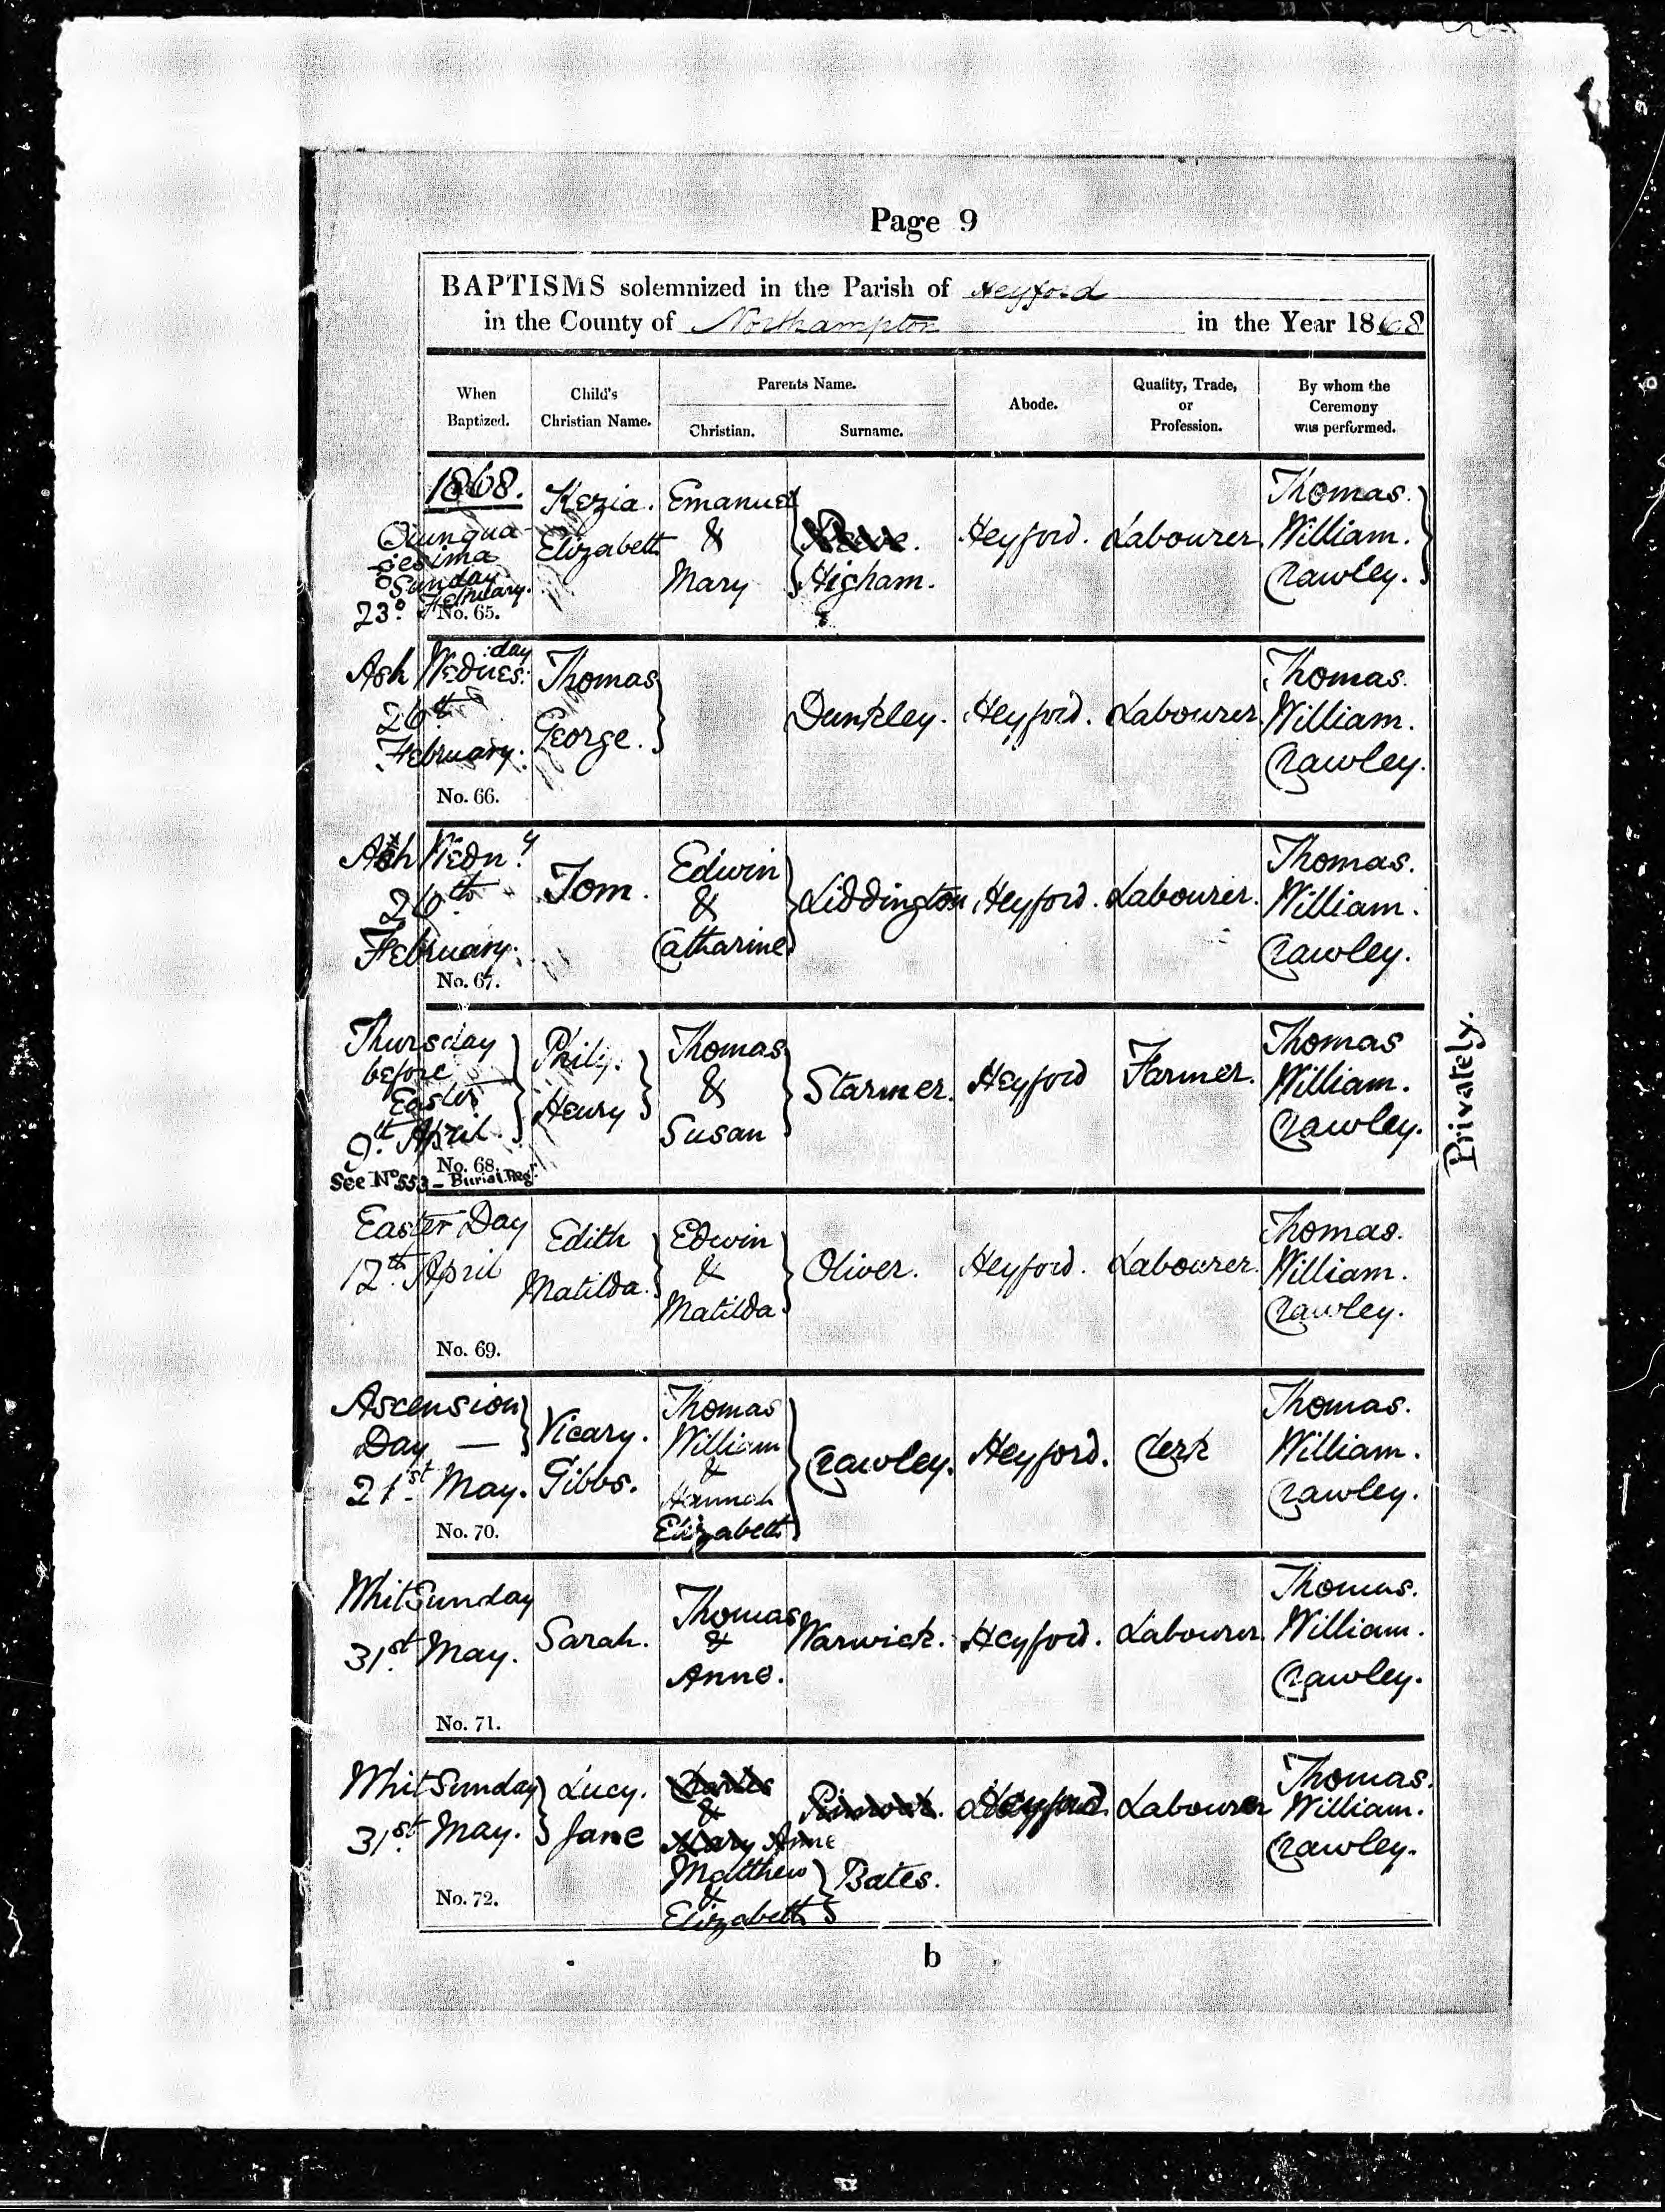 Page 9
BAPTISMS solemnized in the Parish of Heyford
in the County of Northampton in the Year 1868
When Baptized.
Child's Christian Name.
Parents Name.
Christian.
Surname.
Abode.
Quality, Trade, or Profession.
By whom the Ceremony was performed.
1868.
Quinqua-
gesima
Sunday
23º February.
No. 65.
Kezia.
Elizabeth
Emanuel
&
Mary
Higham.
Heyford.
Labourer
Thomas.
William.
Crawley.
Ash Wednes:day
26th
February.
No. 66.
Thomas
George.
Dunkley.
Heyford.
Labourer
Thomas.
William.
Crawley.
Ash Wedn.y
26th
February.
No. 67.
Tom.
Edwin
&
Catharine
Liddington
Heyford.
Labourer.
Thomas.
William.
Crawley.
Thursday
before
Easter
9th April.
No. 68.
See No 553 - Burial Regr
Philip.
Henry
Thomas
&
Susan
Starmer.
Heyford
Farmer.
Thomas
William.
Crawley.
Privately.
Easter Day
12th April
No. 69.
Edith
Matilda.
Edwin
&
Matilda
Oliver.
Heyford.
Labourer.
Thomas.
William.
Crawley.
Ascension
Day —
21st May.
No. 70.
Vicary.
Gibbs.
Thomas
William
&
Hannah
Elizabeth
Crawley.
Heyford.
Clerk
Thomas.
William.
Crawley.
WhitSunday
31st May.
No. 71.
Sarah.
Thomas
&
Anne.
Warwick.
Heyford.
Labourer
Thomas.
William.
Crawley.
Whit Sunday
31st May.
No. 72.
Lucy.
Jane
Charles
&
Mary Anne
Matthew
&
Elizabeth
Bates.
Heyford.
Labourer
Thomas.
William.
Crawley.
b